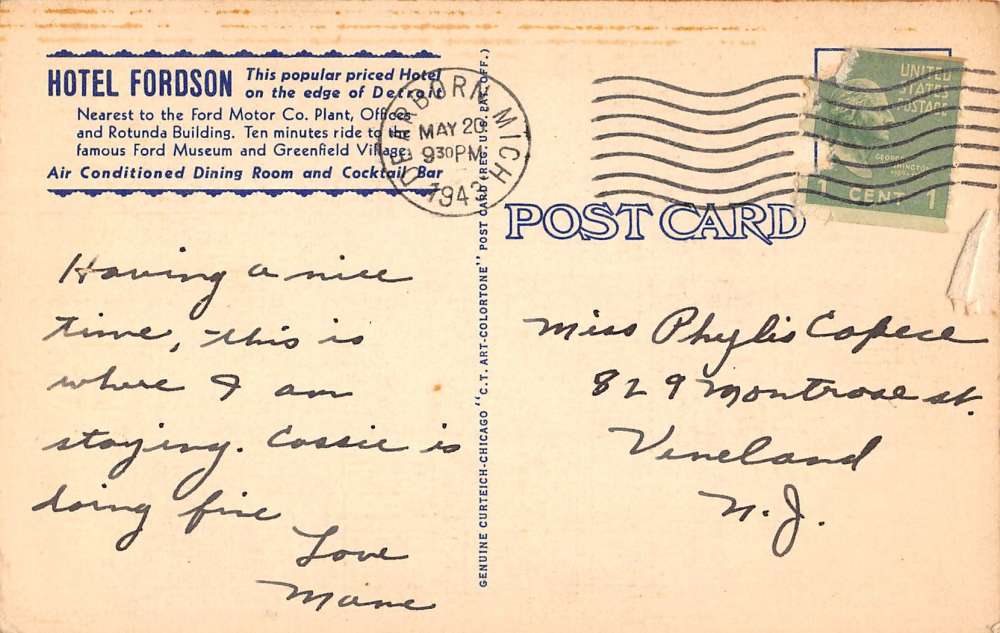 HOTEL FORDSON
This popular priced Hotel
on the edge of Detroit
Nearest to the Ford Motor Co. Plant, Offices
and Rotunda Building. Ten minutes ride to the
famous Ford Museum and Greenfield Village.
Air Conditioned Dining Room and Cocktail Bar
DEARBORN MICH
MAY 20
9 30 PM
1943
UNITED
STATES
POSTAGE
GEORGE
WASHINGTON
1 CENT 1
POST CARD
GENUINE CURTEICH-CHICAGO "C.T. ART-COLORTONE" POST CARD (REG. U.S. PAT. OFF.)
Having a nice
time, this is
where I am
staying. Cossie is
doing fine
Love
Mane
Miss Phylis Capece
829 Montrose st.
Vineland
N.J.